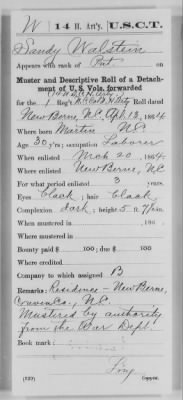 W 14 H. Art'y. U.S.C.T.
Sandy Walstein
Appears with rank of Pvt. on
Muster and Descriptive Roll of a Detach-
ment of U. S. Vols. forwarded
for the 1 Reg't N.C. Col'd H. Art'y Roll dated
New Berne, N.C. Apl. 13, 1864
Where born Martin N.C.
Age 30 y'rs; occupation Laborer
When enlisted Mch 20, 1864
Where enlisted New Berne, N.C.
For what period enlisted 3 years.
Eyes Black; hair Black
Complexion Dark; height 5 ft. 7 in.
When mustered in , 186
Where mustered in
Bounty paid $ 100; due $ 100
Where credited
Company to which assigned B
Remarks: Residence - New Berne,
Craven Co., N.C.
Mustered by authority
from the War Dept.
Book mark:
Copyist.